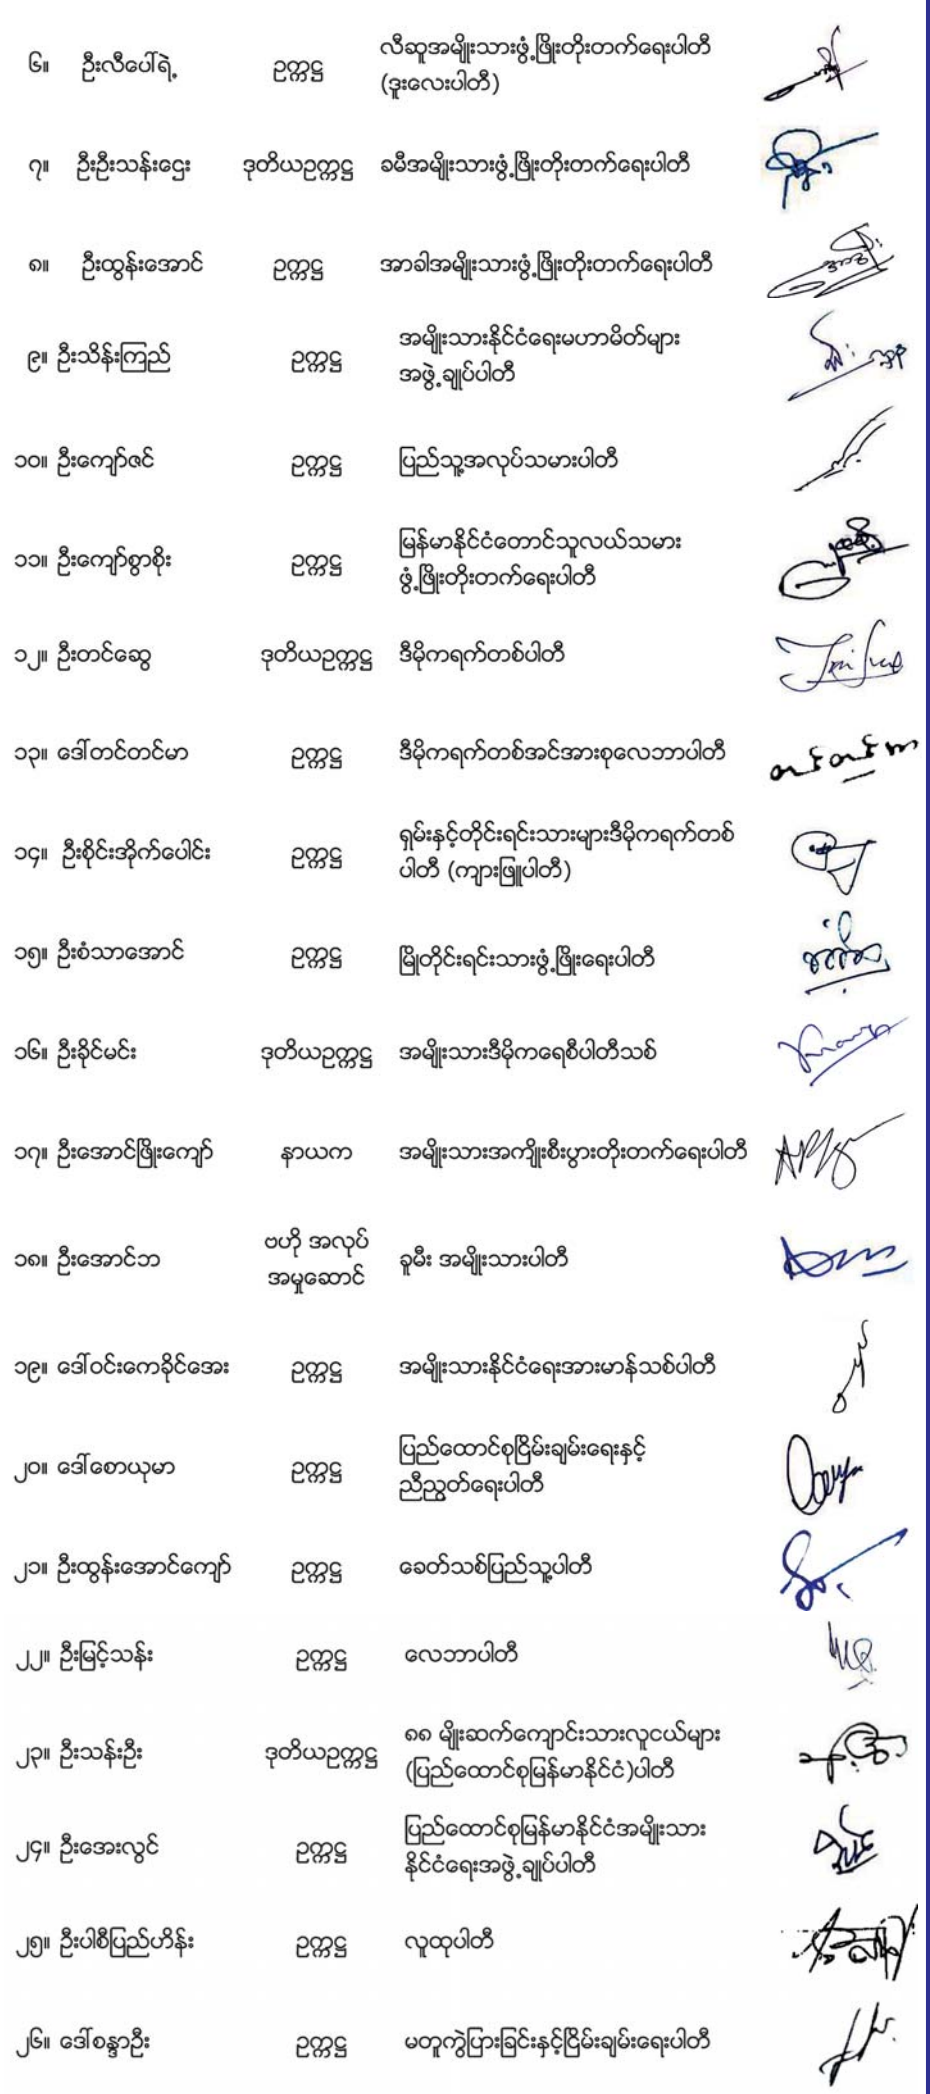 ၆။ ဦးလီပေါ်ရဲ့ ဥက္ကဋ္ဌ လီဆူအမျိုးသားဖွံ့ဖြိုးတိုးတက်ရေးပါတီ
(ဒူးလေးပါတီ)
၇။ ဦးဦးသန်းဌေး ဒုတိယဥက္ကဋ္ဌ ခမီအမျိုးသားဖွံ့ဖြိုးတိုးတက်ရေးပါတီ
၈။ ဦးထွန်းအောင် ဥက္ကဋ္ဌ အာခါအမျိုးသားဖွံ့ဖြိုးတိုးတက်ရေးပါတီ
၉။ ဦးသိန်းကြည် ဥက္ကဋ္ဌ အမျိုးသားနိုင်ငံရေးမဟာမိတ်များ
အဖွဲ့ချုပ်ပါတီ
၁၀။ ဦးကျော်ဇင် ဥက္ကဋ္ဌ ပြည်သူ့အလုပ်သမားပါတီ
၁၁။ ဦးကျော်စွာစိုး ဥက္ကဋ္ဌ မြန်မာနိုင်ငံတောင်သူလယ်သမား
ဖွံ့ဖြိုးတိုးတက်ရေးပါတီ
၁၂။ ဦးတင်ဆွေ ဒုတိယဥက္ကဋ္ဌ ဒီမိုကရက်တစ်ပါတီ
၁၃။ ဒေါ်တင်တင်မာ ဥက္ကဋ္ဌ ဒီမိုကရက်တစ်အင်အားစုလေဘာပါတီ တင်တင်မာ
၁၄။ ဦးစိုင်းအိုက်ပေါင်း ဥက္ကဋ္ဌ ရှမ်းနှင့်တိုင်းရင်းသားများဒီမိုကရက်တစ်
ပါတီ (ကျားဖြူပါတီ)
၁၅။ ဦးစံသာအောင် ဥက္ကဋ္ဌ မြိုတိုင်းရင်းသားဖွံ့ဖြိုးရေးပါတီ
၁၆။ ဦးခိုင်မင်း ဒုတိယဥက္ကဋ္ဌ အမျိုးသားဒီမိုကရေစီပါတီသစ်
၁၇။ ဦးအောင်ဖြိုးကျော် နာယက အမျိုးသားအကျိုးစီးပွားတိုးတက်ရေးပါတီ
၁၈။ ဦးအောင်ဘ ဗဟို အလုပ်
အမှုဆောင် ခူမီး အမျိုးသားပါတီ
၁၉။ ဒေါ်ဝင်းကေခိုင်အေး ဥက္ကဋ္ဌ အမျိုးသားနိုင်ငံရေးအားမာန်သစ်ပါတီ
၂၀။ ဒေါ်စောယုမာ ဥက္ကဋ္ဌ ပြည်ထောင်စုငြိမ်းချမ်းရေးနှင့်
ညီညွတ်ရေးပါတီ
၂၁။ ဦးထွန်းအောင်ကျော် ဥက္ကဋ္ဌ ခေတ်သစ်ပြည်သူ့ပါတီ
၂၂။ ဦးမြင့်သန်း ဥက္ကဋ္ဌ လေဘာပါတီ
၂၃။ ဦးသန်းဦး ဒုတိယဥက္ကဋ္ဌ ၈၈ မျိုးဆက်ကျောင်းသားလူငယ်များ
(ပြည်ထောင်စုမြန်မာနိုင်ငံ)ပါတီ
၂၄။ ဦးအေးလွင် ဥက္ကဋ္ဌ ပြည်ထောင်စုမြန်မာနိုင်ငံအမျိုးသား
နိုင်ငံရေးအဖွဲ့ချုပ်ပါတီ
၂၅။ ဦးပါစီပြည်ဟိန်း ဥက္ကဋ္ဌ လူထုပါတီ
၂၆။ ဒေါ်စန္ဒာဦး ဥက္ကဋ္ဌ မတူကွဲပြားခြင်းနှင့်ငြိမ်းချမ်းရေးပါတီ